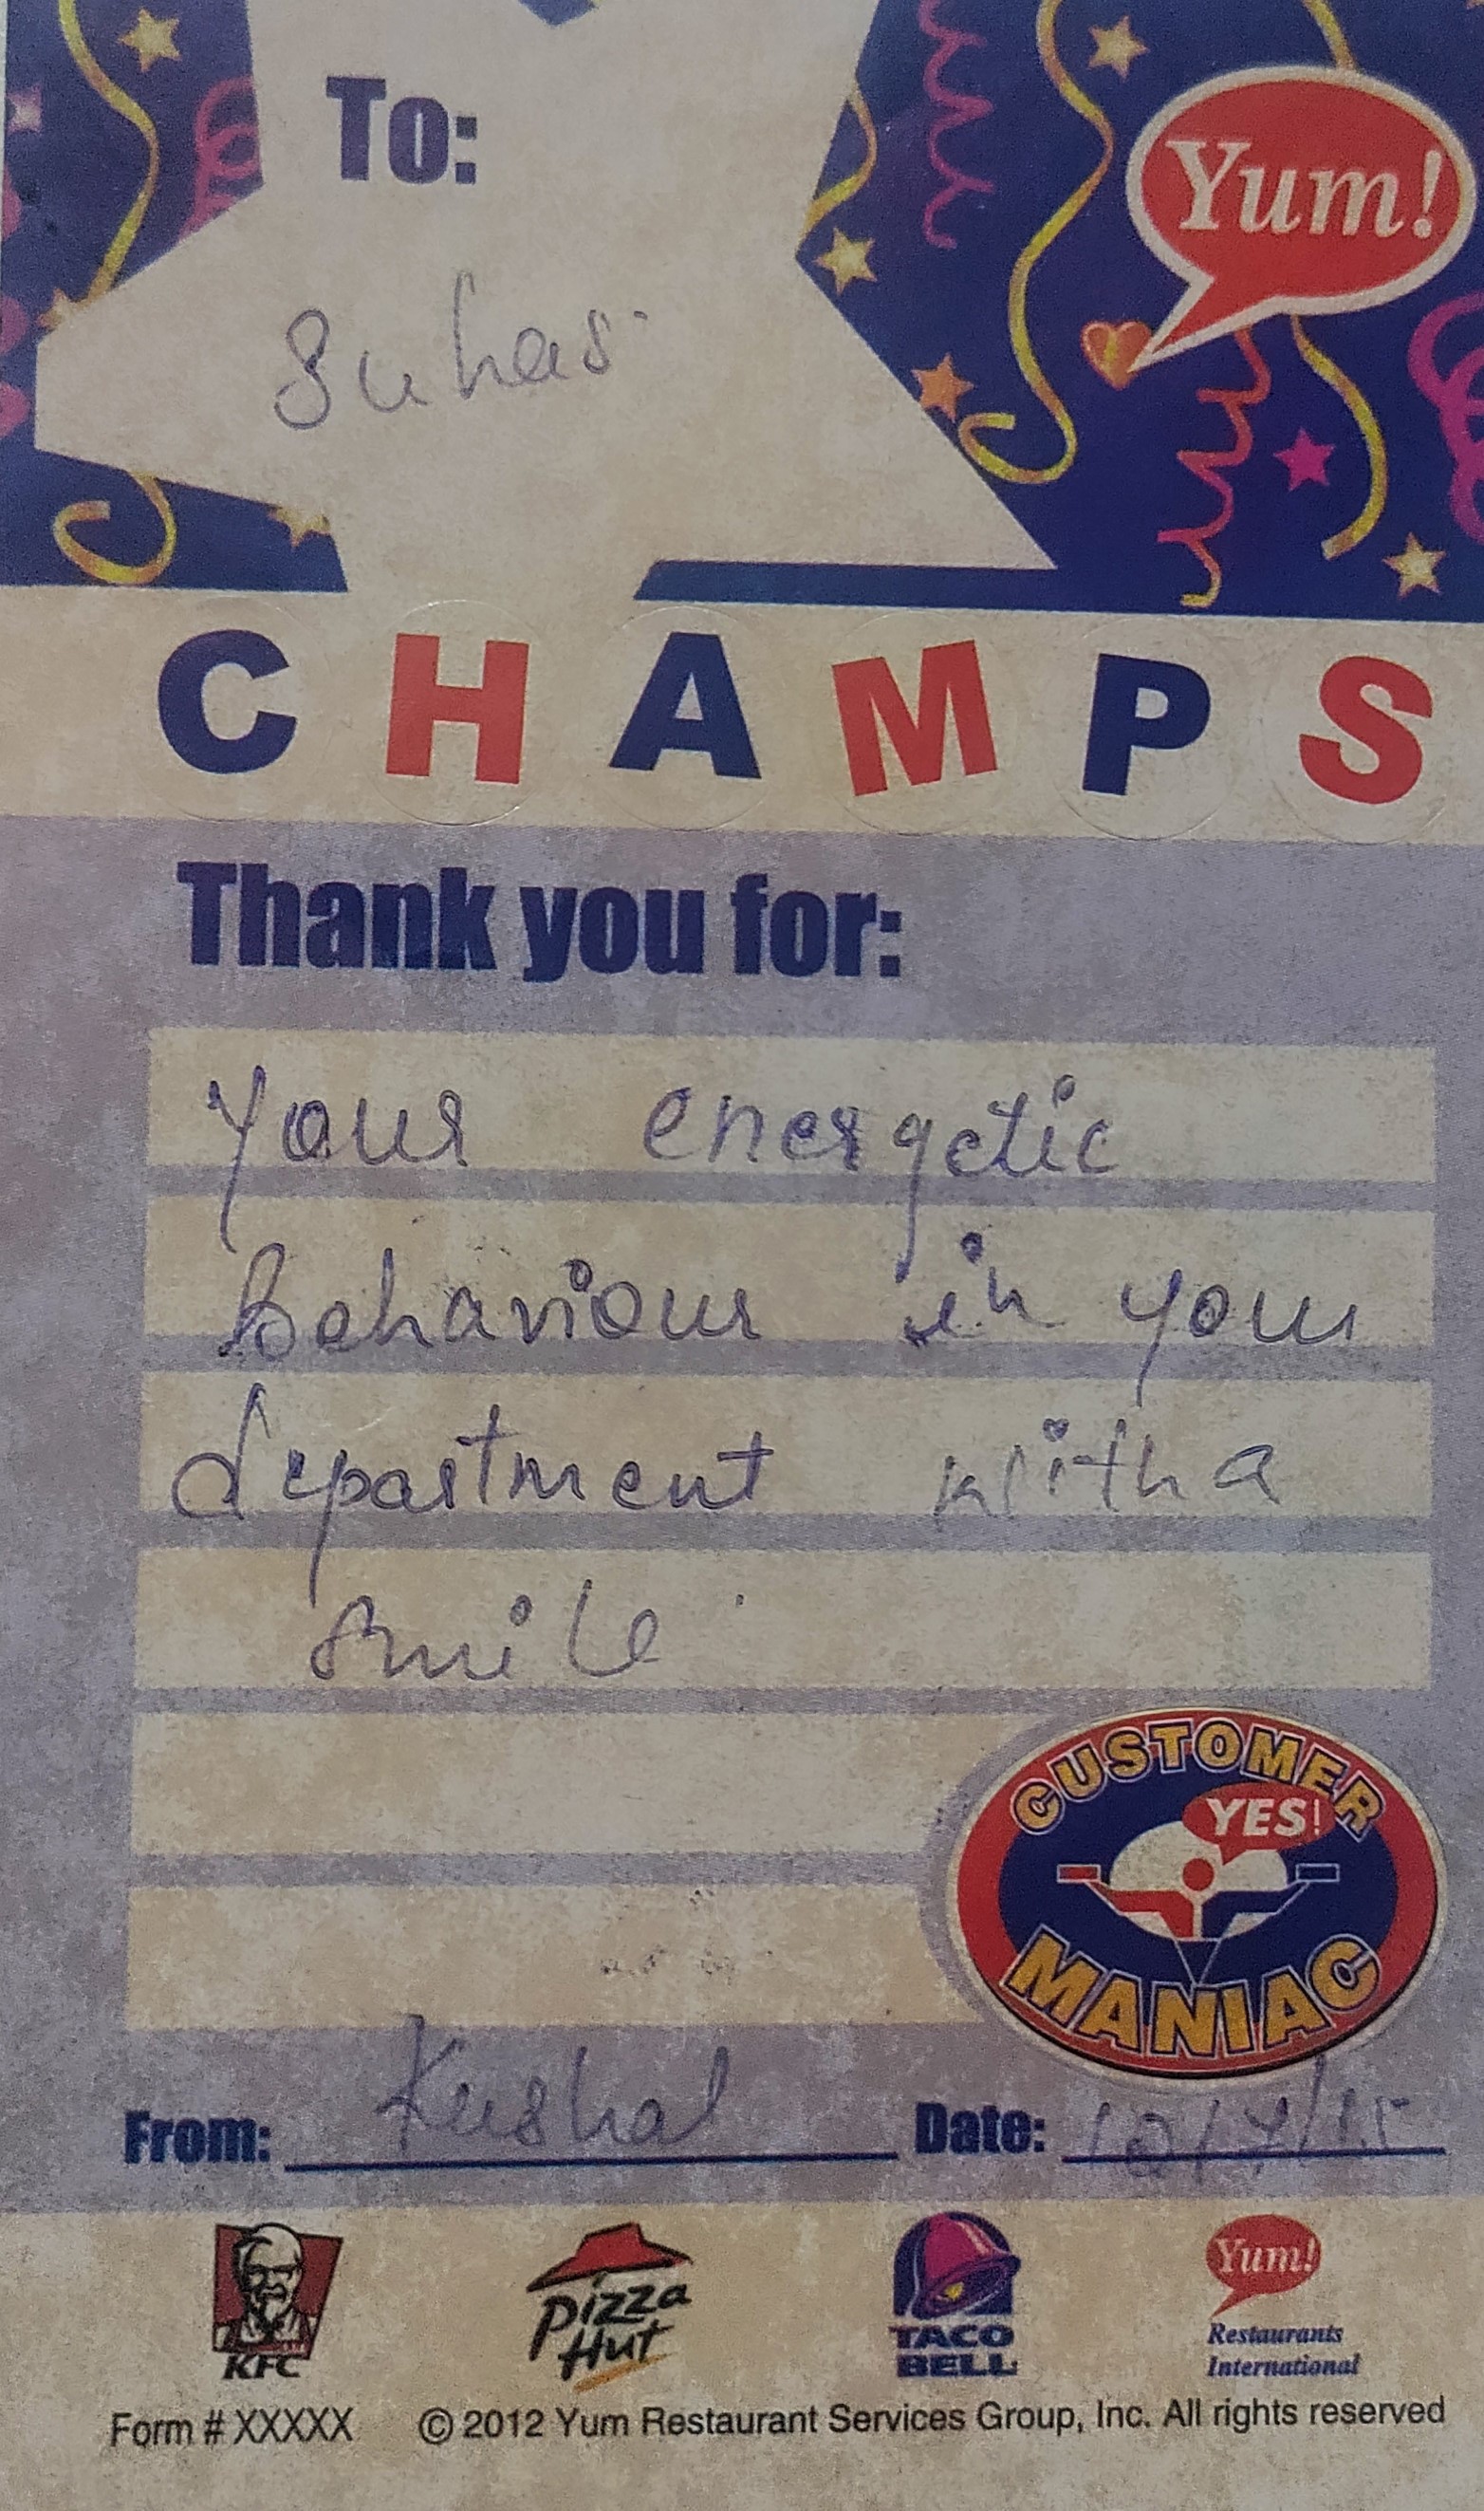 To:
Yum!
Suhas.
CHAMPS
Thank you for:
Your energetic
Behaviour in your
department with a
smile.
CUSTOMER
YES!
MANIAC
From: Kushal Date: 10/7/15
KFC
Pizza
Hut
TACO
BELL
Yum!
Restaurants
International
Form # XXXXX © 2012 Yum Restaurant Services Group, Inc. All rights reserved